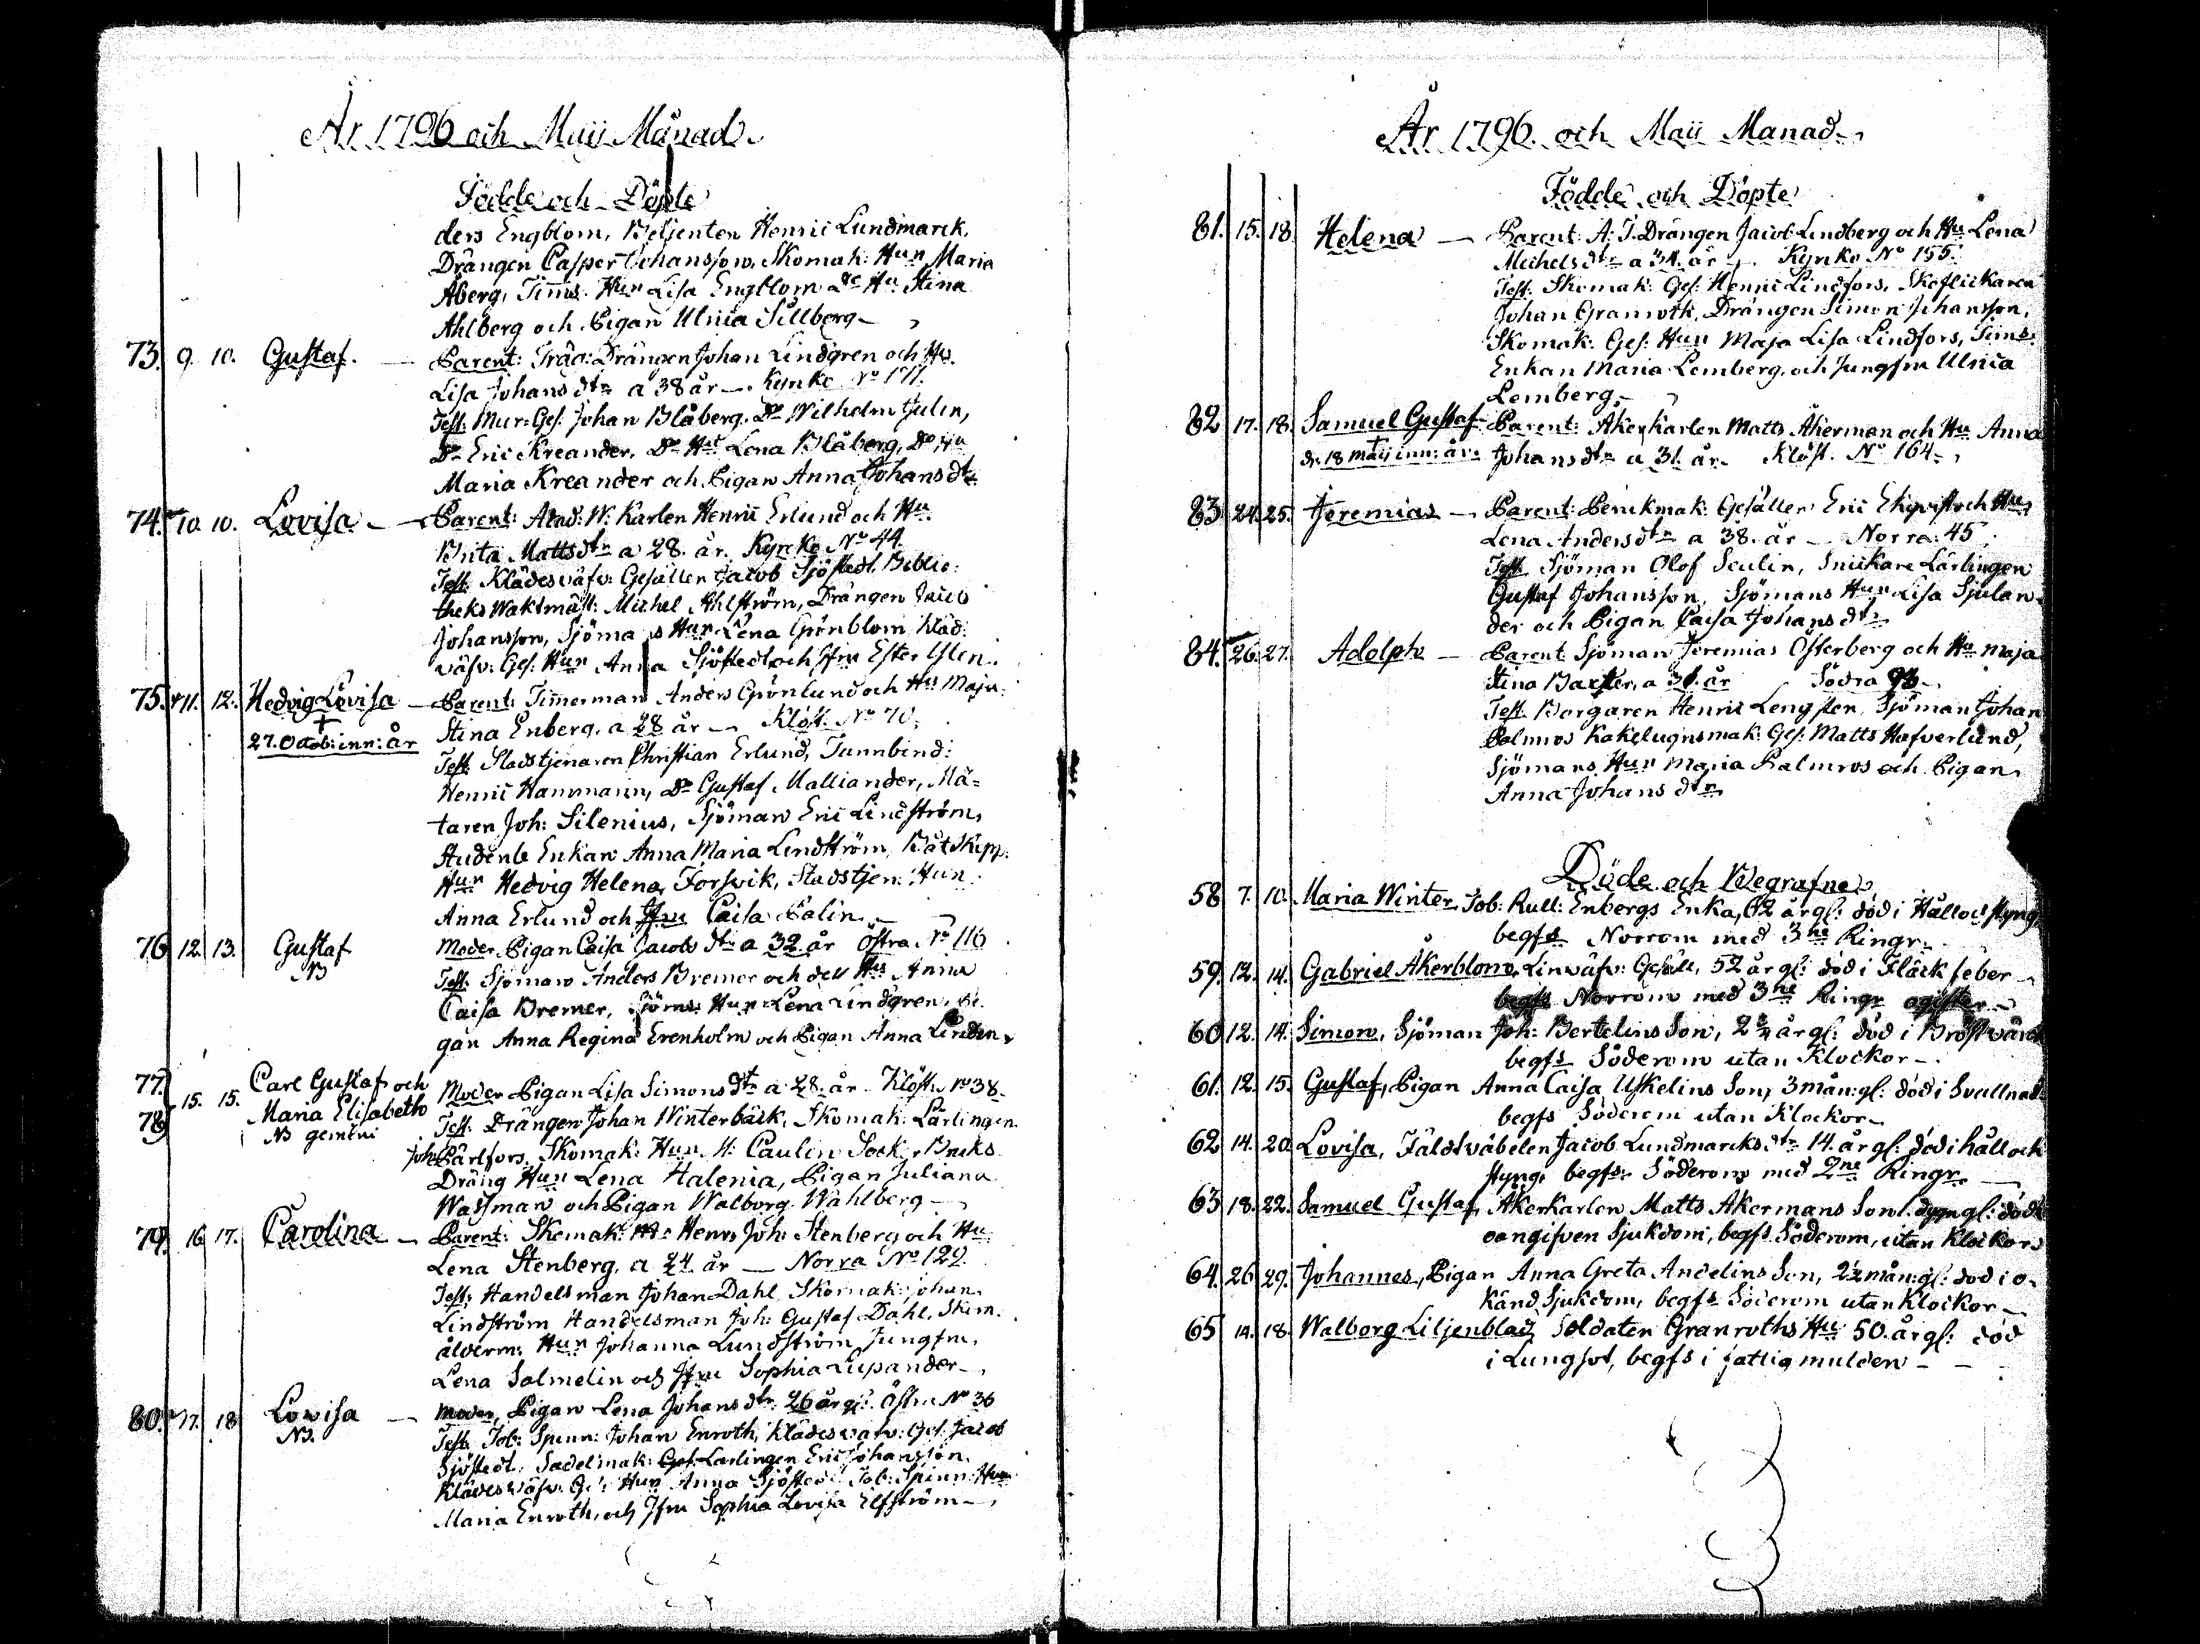 År 1796 och Maij Månad.
Födde och Döpte
ders Engblom, Betjenten Henric Lundmarck,
Drängen Casper Johansson, Skomak: Hun Maria
Åberg, Timms. Hun Lisa Engblom Do Hu Stina
Ahlberg och Pigan Ulrica Sillberg
73. 9. 10. Gustaf. Parent: Träg: Drängen Johan Lindgren och Hu.
Lisa Johans dtr a 38 år Kyrko No 171.
Test: Mur: Ges: Johan Blåberg. Do Wilhelm Julin,
Do Eric Kreander, Do Hu Lena Blåberg, Do Hu
Maria Kreander och Pigan Anna Johans dtr
74. 10. 10. Lovisa Parent: Acad: W. Karlen Henric Erlund och Hu
Brita Matts dtr a 28. år. Kyrko No 44.
Test. Klädesväfv: Gesällen Jacob Sjöstedt. Biblio:
theks Waktmäst: Michel Ahlström, Drängen Jacob
Johansson, Sjöma s Hun Lena Grönblom Kläd:
väfv: Ges: Hun Anna Sjöstedt och Jfru Ester
75. 11. 12. Hedvig Lovisa Parent: Timerman Anders Grönlund och Hu Maja
+
27. Octob: inn: år
Stina Enberg, a 28 år Klöst. No 70.
Test. Stadstjenaren Christian Erlund, Tunnbind:
Henric Hammarin, Do Gustaf Malliander, Mä-
taren Joh: Silenius, Sjöman Eric Lindström,
Studente Enkan Anna Maria Lindström, Båtskepp:
Hun Hedvig Helena Forsvik, Stadstjen: Hun
Anna Erlund och Jfru Caisa Palin
76. 12. 13. Gustaf Moder Pigan Caisa Jacobs dtr a 32 år Östra No 116
NB
Test: Sjöman Anders Bremer och dess Hu Anna
Caisa Bremer, Sjöms: Hun Lena Lindgren, Pi-
gan Anna Regina Erenholm och Pigan Anna Linden
77. 78. 15. 15. Carl Gustaf och
Maria Elisabeth
NB gemini
Moder Pigan Lisa Simons dtr a 28. år Klöst. No 38.
Test. Drängen Johan Winterbäck, Skomak: Lärlingen
Joh: Carlfors, Skomak: Hun M: Caulin Sock: Bruks
Dräng Hun Lena Halenia, Pigan Juliana
Wassman och Pigan Walborg Wahlberg
79. 16. 17. Carolina Parent: Skomak: Henr. Joh: Stenberg och Hu
Lena Stenberg, a 24 år Norra No 129.
Test: Handelsman Johan Dahl Skomak: Johan
Lindström Handelsman Joh: Gustaf Dahl, Skom.
ålderm: Hun Johanna Lundström Jungfru
Lena Salmelin och Jfru Sophia Lupander
80. 17. 18 Lovisa Moder, Pigan Lena Johans dtr 26 år gl: Östra No 36
NB.
Test. Tob: Spinn: Johan Enroth, Klädesväfv: Ges: Jacob
Sjöstedt, Sadelmak: Lärlingen Eric Johansson,
Klädesväfv: Ges: Hun Anna Sjöstedt Tob: Spinn: Hun
Maria Enroth, och Jfru Sophia Lovisa Elfström
År 1796. och Maii Månad.
Födde och Döpte
81. 15. 18. Helena Parent: A. T. Drängen Jacob Lindberg och Hu Lena
Michels dtr a 34. år Kyrko No 155.
Test: Skomak: Ges: Henric Lindfors, Skoflickaren
Johan Granroth, Drängen Simon Johansson,
Skomak: Ges: Hun Maja Lisa Lindfors, Tims:
Enkan Maria Lemberg, och Jungfru Ulrica
Lemberg.
82 17. 18. Samuel Gustaf Parent: Åkerkarlen Matts Åkerman och Hu Anna
+
d. 18 Maij inn: år.
Johans dtr a 31. år. Klöst. No 164.
83. 24. 25. Jeremias Parent: Perukmak: Gesällen Eric Ekqvist och Hu
Lena Anders dtr a 38. år Norra: 45
Test. Sjöman Olof Sculin, Snickare Lärlingen
Gustaf Johansson, Sjömans Hun Lisa Sjulan-
der och Pigan Caisa Johans dtr
84. 26. 27. Adolph Parent. Sjöman Jeremias Österberg och Hu Maja
Stina Baxter, a 31. år Södra 93
Test. Borgaren Henric Lengsten, Sjöman Johan
Palmros Kakelugnsmak: Ges: Matts Hafverlund,
Sjömans Hun Maria Palmros och Pigan
Anna Johans dtr
Döde och Begrafne
58 7. 10. Maria Winter Tob: Rull: Enbergs Enka, 62 år gl: död i Håll och styng
begfs Norrom med 3ne Ringr.
59. 12. 14. Gabriel Åkerblom, Linväfv: Gesäll, 52 år gl: död i Fläckfeber
begfs Norrom med 3ne Ringr ogifter
60 12. 14. Simon, Sjöman Joh: Bertelins Son, 2 3/4 år gl: död i Bröstvärck
begfs Söderom utan Klockor
61. 12. 15. Gustaf, Pigan Anna Caisa Uskelins Son, 3 mån: gl: död i Svullnad
begfs Söderom utan Klockor
62 14. 20. Lovisa, Fältväbelen Jacob Lundmarcks dtr 14. år gl: död i håll och
styng, begfs Söderom med 2ne Ringr.
63 18. 22. Samuel Gustaf, Åkerkarlen Matts Åkermans Son 1. dygn gl: död i
oangifven Sjukdom, begfs Söderom, utan Klockor
64. 26 29. Johannes, Pigan Anna Greta Andelins Son, 2 1/2 mån: gl: död i o-
känd Sjukdom, begfs Söderom utan Klockor
65 14. 18. Walborg Liljenblad, Soldaten Granroths Hu 50. år gl: död
i Lungsot, begfs i fattigmulden